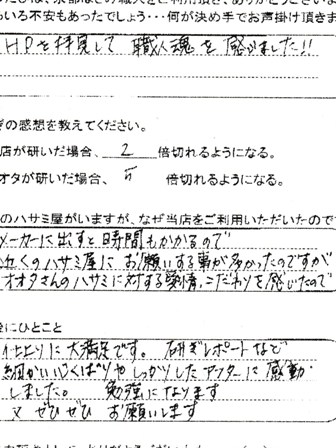 いろいろ不安もあったでしょう・・・何が決め手でお声掛け頂きま
HPを拝見して 職人魂を 感じました!!
ぎの感想を教えてください。
店が研いだ場合、2 倍切れるようになる。
オタが研いだ場合、5 倍切れるようになる。
のハサミ屋がいますが、なぜ当店をご利用いただいたので
メーカーに出すと時間もかかるので
近くのハサミ屋に お願いする事が多かったのですが
オオタさんのハサミに対する愛情、こだわりを感じたので
にひとこと
仕上りに大満足です。 研ぎレポートなど
細かい心くばりやしっかりしたアフターに感動
しました。 勉強になります
又 ぜひぜひ お願いします